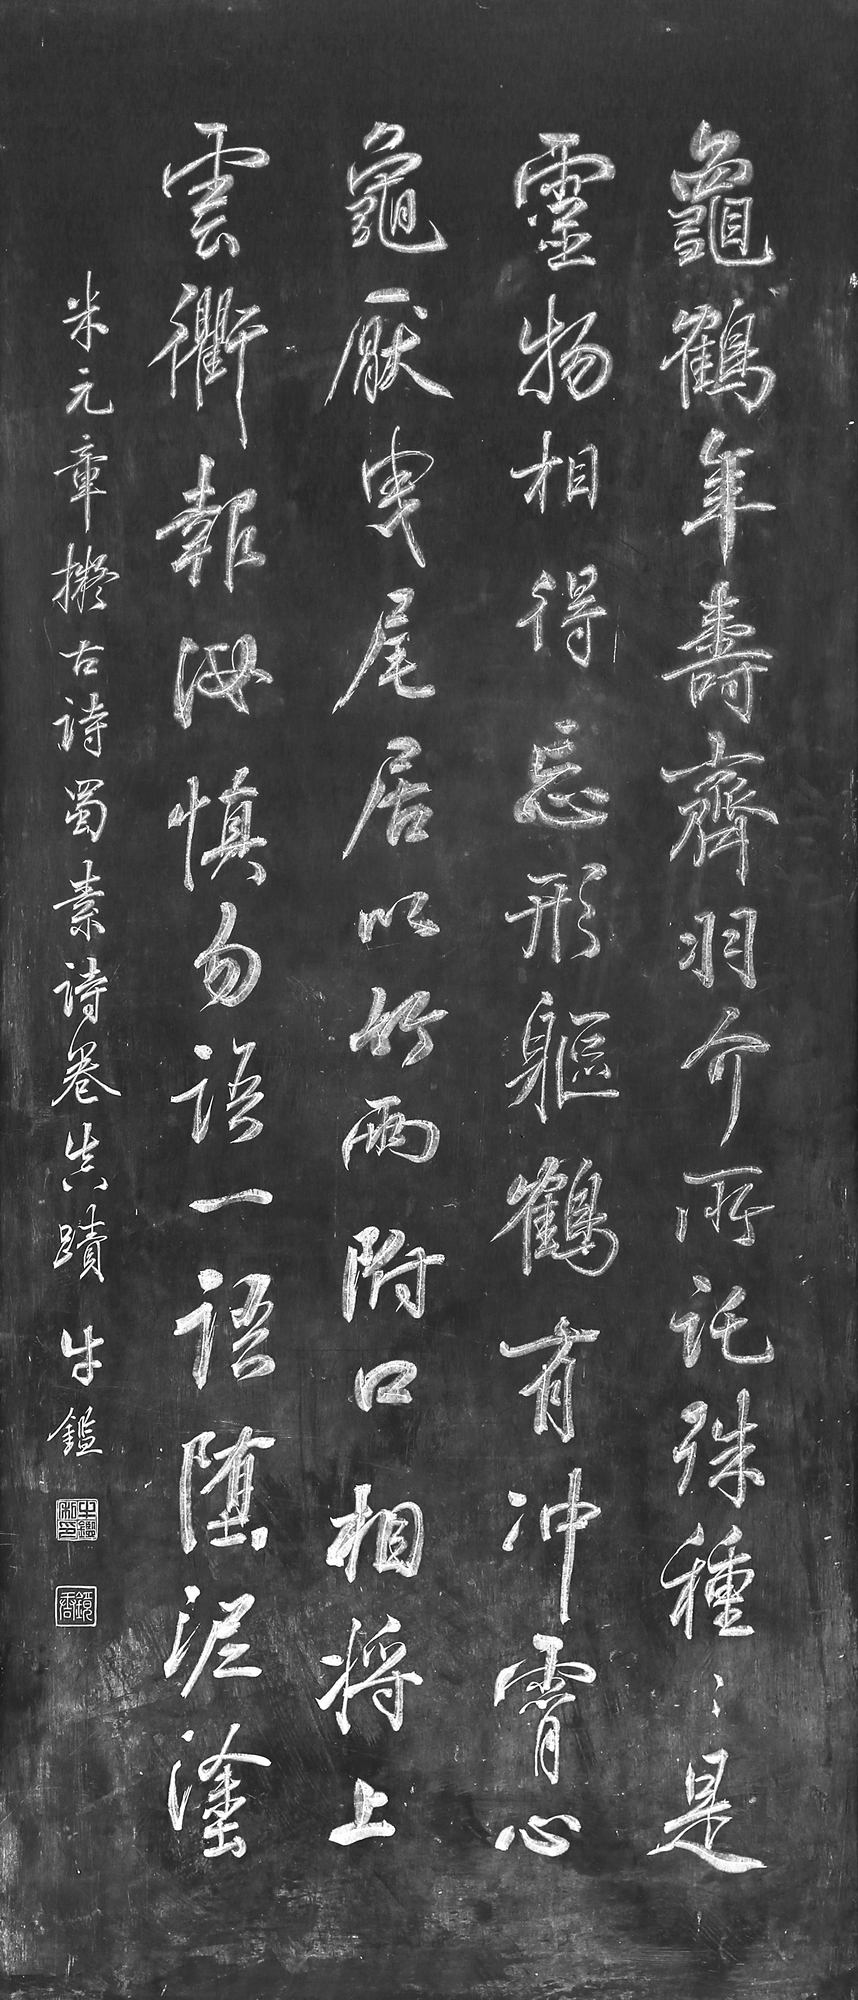 龜鶴年壽齊羽介所託殊種〻是
靈物相得忘形軀鶴有冲霄心
龜厭曳尾居以竹兩附口相将上
雲衢報汝慎勿語一語堕泥塗
米元章擬古詩蜀素詩卷真蹟 牛鑑
牛鑑私印
鏡唐